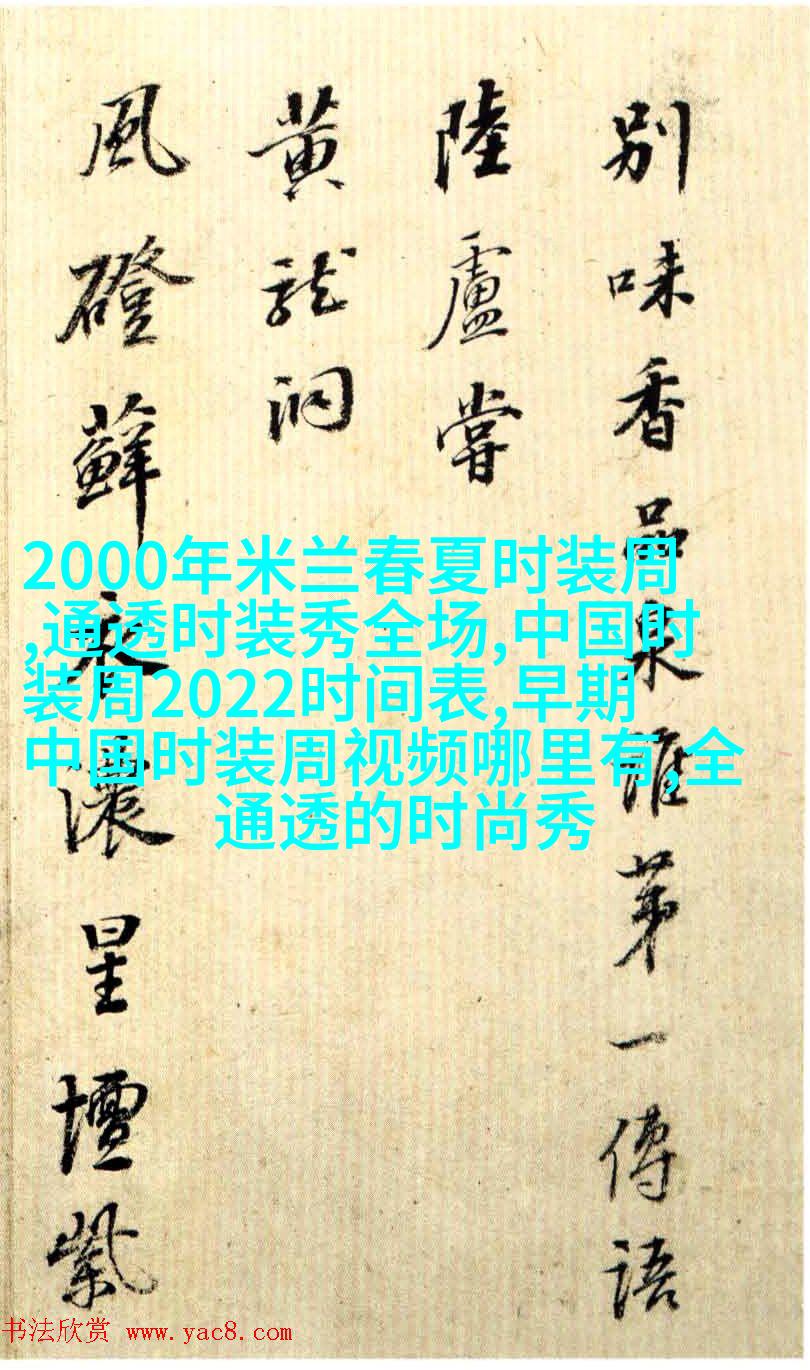 別味香品泉誰苐一傳語
陸盧嘗
黄龍洞
風磴蘚衣濃星壇紫
2000年米兰春夏时装周
,通透时装秀全场,中国时
装周2022时间表,早期
中国时装周视频哪里有,全
通透的时尚秀
书法欣赏 www.yac8.com